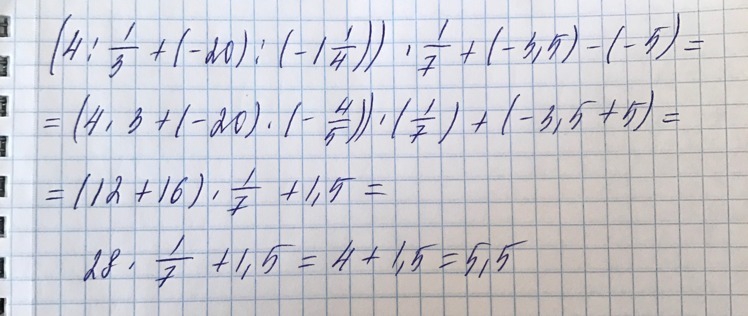 (4 : 1/3 + (-20) : (-1 1/4)) · 1/7 + (-3,5) - (-5) =
= (4 · 3 + (-20) · (-4/5)) · (1/7) + (-3,5 + 5) =
= (12 + 16) · 1/7 + 1,5 =
28 · 1/7 + 1,5 = 4 + 1,5 = 5,5